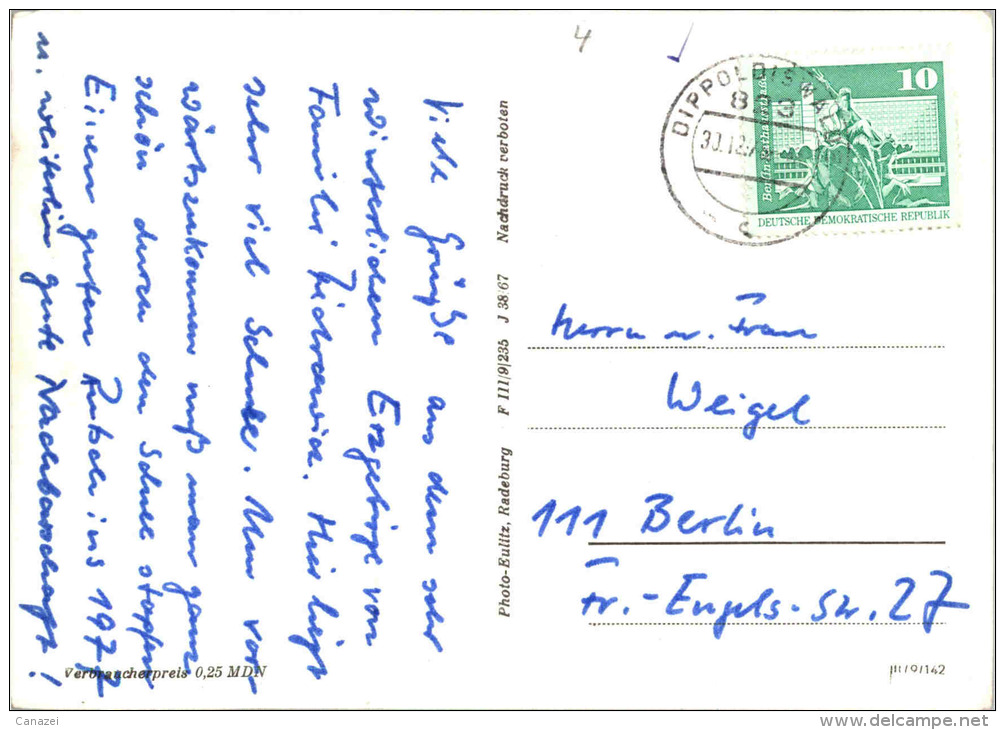 4
Viele Grüße aus dem sehr
winterlichen Erzgebirge von
Familie Hier liegt
sehr viel Schnee. Um vor-
wärtszukommen muß man ganz
schön durch den Schnee stapfen
Einen guten Rutsch ins 1977
u. weiterhin gute Nachbarschaft!
Verbraucherpreis 0,25 MDN
Photo-Eulitz, Radeburg F III/9/235 J 38/67 Nachdruck verboten
DIPPOLDISWALDE
823
30.12.
c
10
Berlin
DEUTSCHE DEMOKRATISCHE REPUBLIK
Herrn u. Frau
Weigel
111 Berlin
Fr.-Engels-Str. 27
III/9/142
Canazei
www.delcampe.net